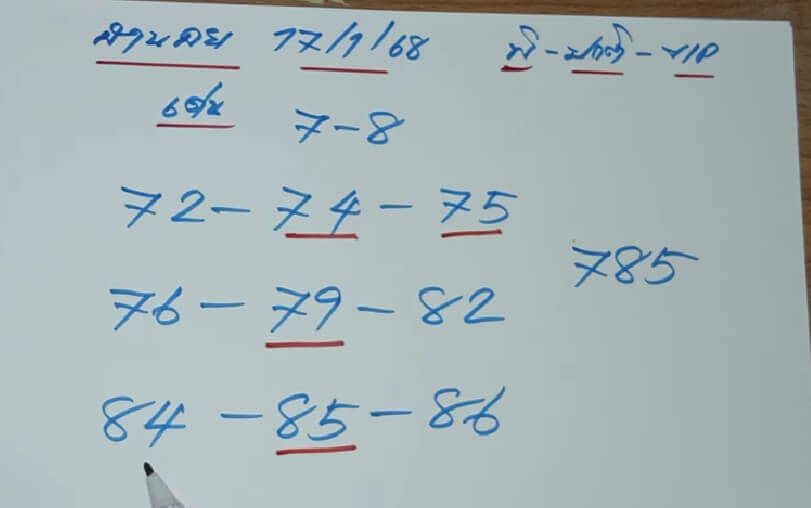 ฮานอย 17/1/68 พิ-ปกติ-VIP
เด่น 7-8
72-74-75
785
76-79-82
84-85-86